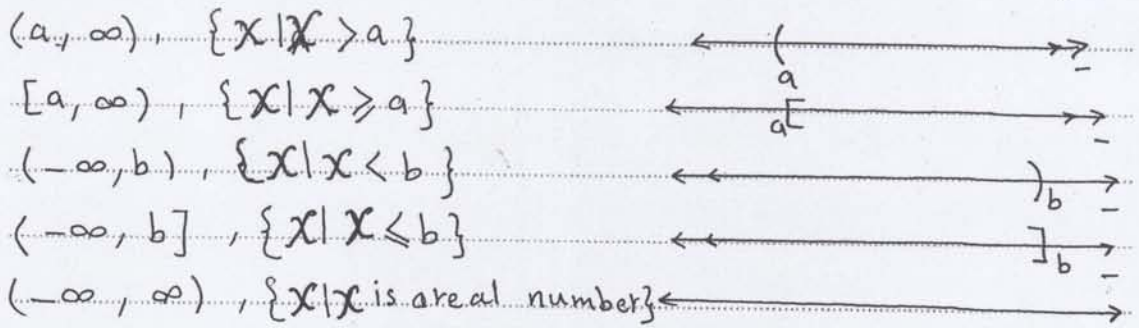 (a, ∞), {x|x > a} ( a
[a, ∞), {x|x ⩾ a} a[
(-∞, b), {x|x < b} ) b
(-∞, b], {x|x ⩽ b} ] b
(-∞, ∞), {x|x is areal number}